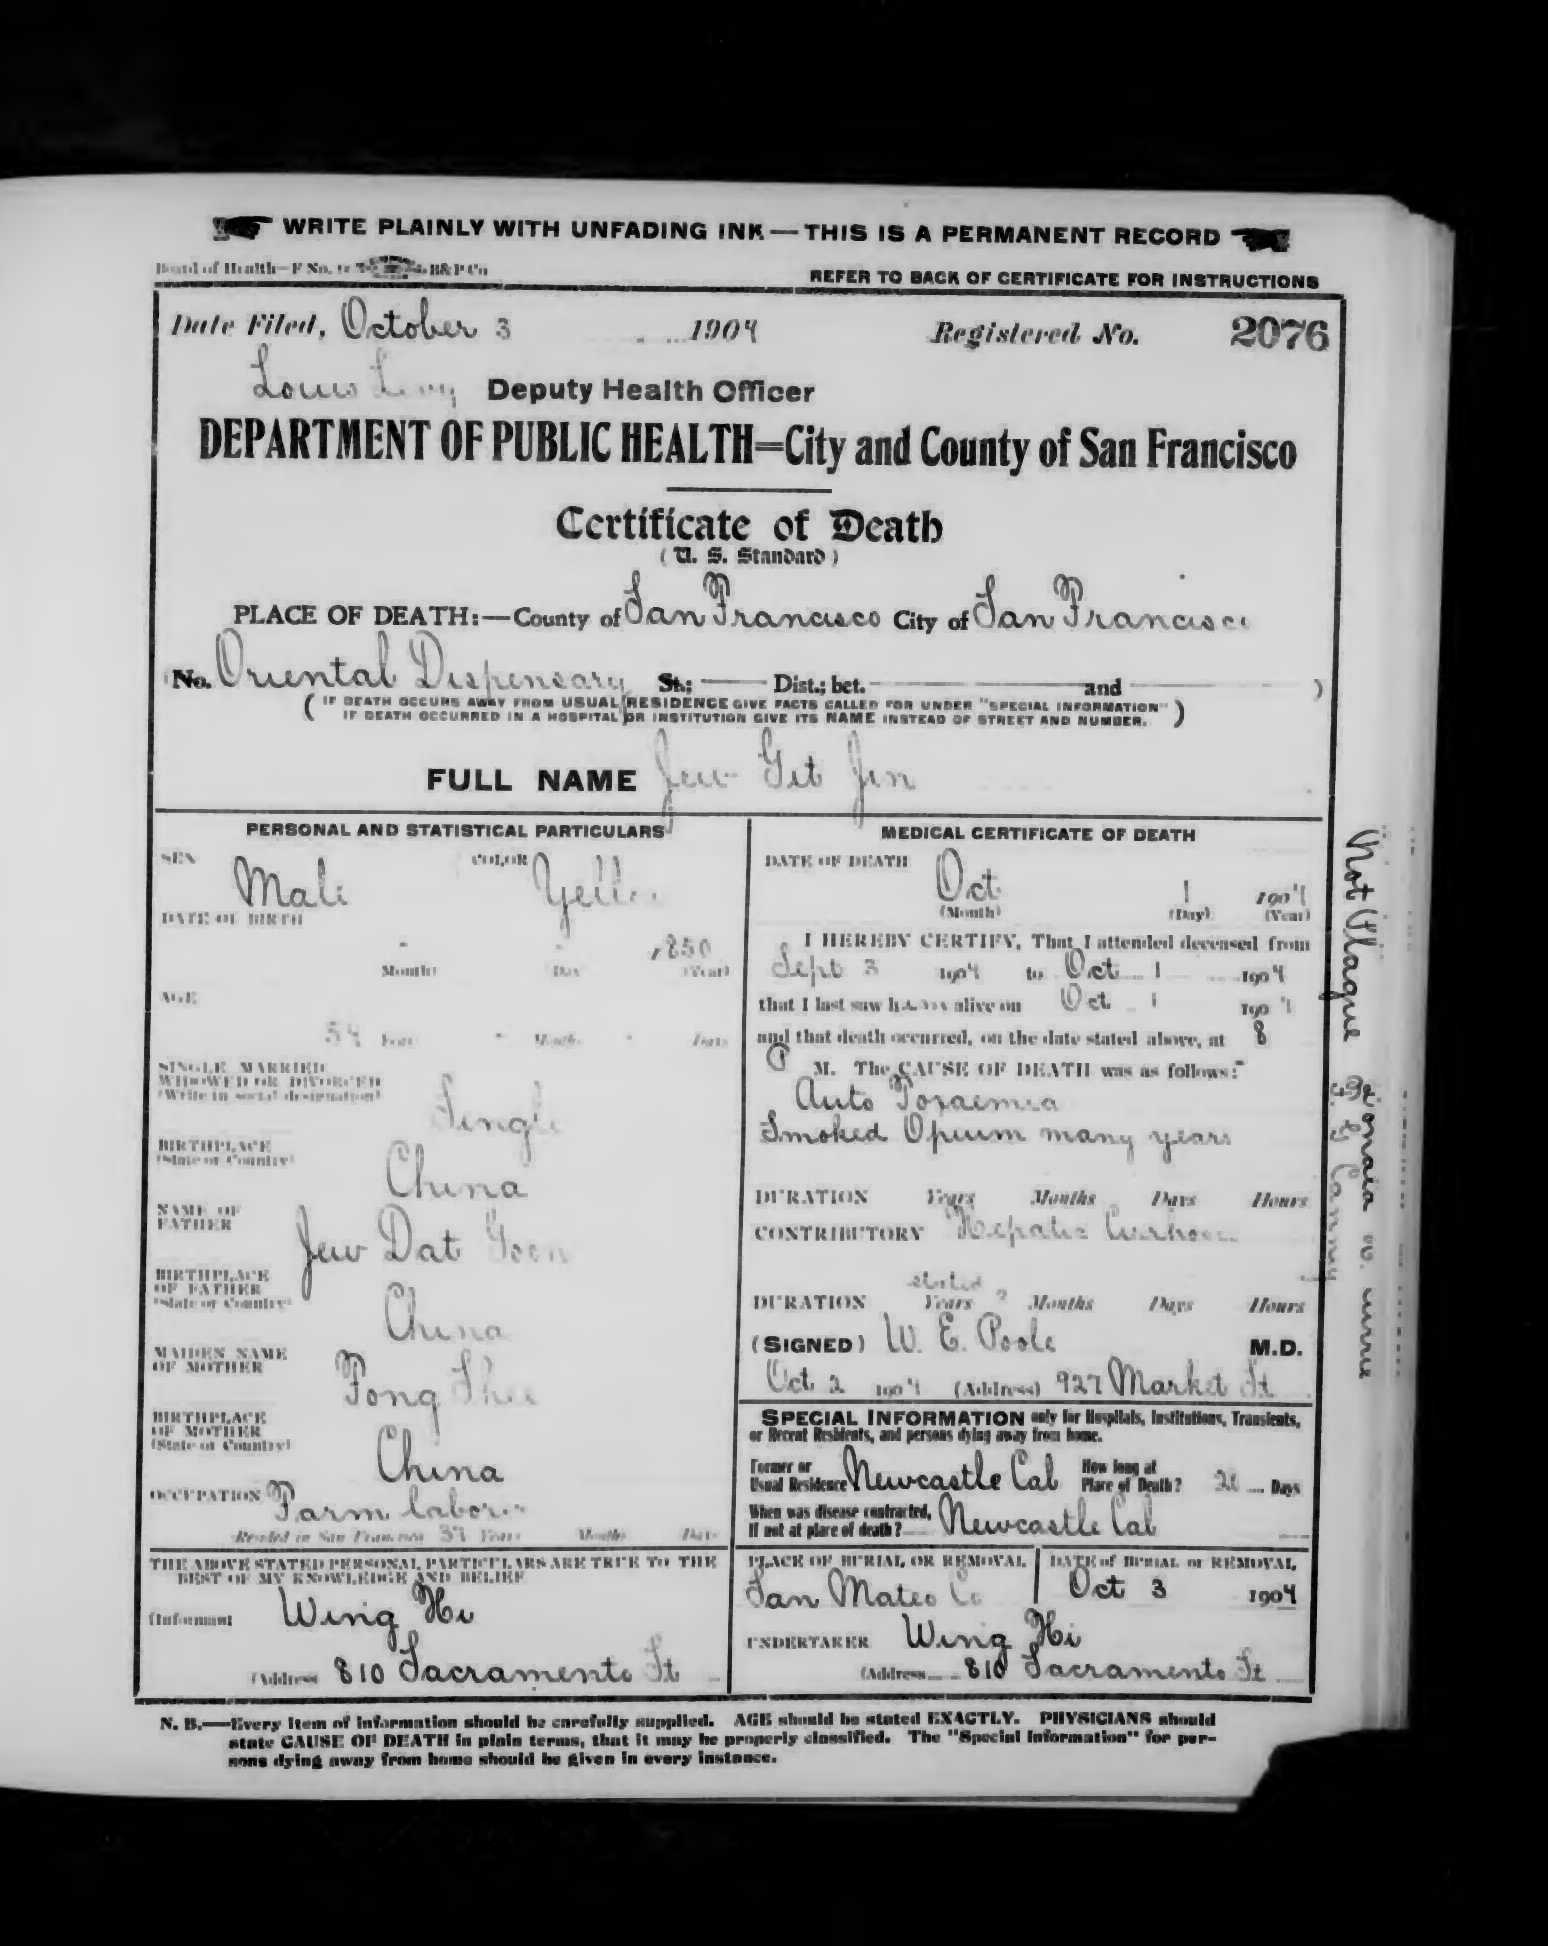 WRITE PLAINLY WITH UNFADING INK — THIS IS A PERMANENT RECORD
Board of Health—F No. B&P Co
REFER TO BACK OF CERTIFICATE FOR INSTRUCTIONS
Date Filed, October 3 1904 Registered No. 2076
Louis Levy Deputy Health Officer
DEPARTMENT OF PUBLIC HEALTH=City and County of San Francisco
Certificate of Death
(U. S. Standard)
PLACE OF DEATH:—County of San Francisco City of San Francisco
(No. Oriental Dispensary St.; Dist.; bet. and )
(IF DEATH OCCURS AWAY FROM USUAL RESIDENCE GIVE FACTS CALLED FOR UNDER "SPECIAL INFORMATION"
IF DEATH OCCURRED IN A HOSPITAL OR INSTITUTION GIVE ITS NAME INSTEAD OF STREET AND NUMBER.)
FULL NAME Jew Git Jin
PERSONAL AND STATISTICAL PARTICULARS
SEX Male COLOR Yellow
DATE OF BIRTH
1850
Month Day (Year)
AGE
54 Years Months Days
SINGLE MARRIED
WIDOWED OR DIVORCED
(Write in social designation)
Single
BIRTHPLACE
(State or Country)
China
NAME OF
FATHER
Jew Dat Goon
BIRTHPLACE
OF FATHER
(State or Country)
China
MAIDEN NAME
OF MOTHER
Fong Shee
BIRTHPLACE
OF MOTHER
(State or Country)
China
OCCUPATION Farm labor
Resided in San Francisco Years Months Days
THE ABOVE STATED PERSONAL PARTICULARS ARE TRUE TO THE
BEST OF MY KNOWLEDGE AND BELIEF
(Informant Wing Hi
(Address 810 Sacramento St
MEDICAL CERTIFICATE OF DEATH
DATE OF DEATH
Oct 1 1904
(Month) (Day) (Year)
I HEREBY CERTIFY, That I attended deceased from
Sept 3 1904 to Oct 1 1904
that I last saw him alive on Oct 1 1904
and that death occurred, on the date stated above, at 8
P M. The CAUSE OF DEATH was as follows:
Auto Toxaemia
Smoked Opium many years
DURATION Years Months Days Hours
CONTRIBUTORY Hepatic Cirrhosis
stated ?
DURATION Years Months Days Hours
(SIGNED) W. E. Poole M.D.
Oct 2 1904 (Address) 927 Market St
SPECIAL INFORMATION only for Hospitals, Institutions, Transients,
or Recent Residents, and persons dying away from home.
Former or
Usual Residence Newcastle Cal
How long at
Place of Death? Days
When was disease contracted,
If not at place of death? Newcastle Cal
PLACE OF BURIAL OR REMOVAL
San Mateo Co
DATE of BURIAL or REMOVAL
Oct 3 1904
UNDERTAKER Wing Hi
(Address 810 Sacramento St
N. B.—Every item of information should be carefully supplied. AGE should be stated EXACTLY. PHYSICIANS should
state CAUSE OF DEATH in plain terms, that it may be properly classified. The "Special Information" for per-
sons dying away from home should be given in every instance.
Not Plague
Donald H. Currie